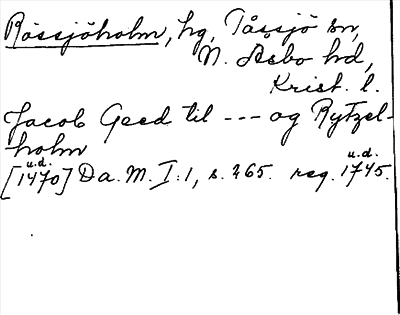 Rössjöholm, hg, Tåssjö sn,
N. Åsbo hd,
Krist. l.
Jacob Geed til --- og Rytzel-
holm
u.d. u.d.
[1470] Da. M. I:1, s. 265. reg. 1745.